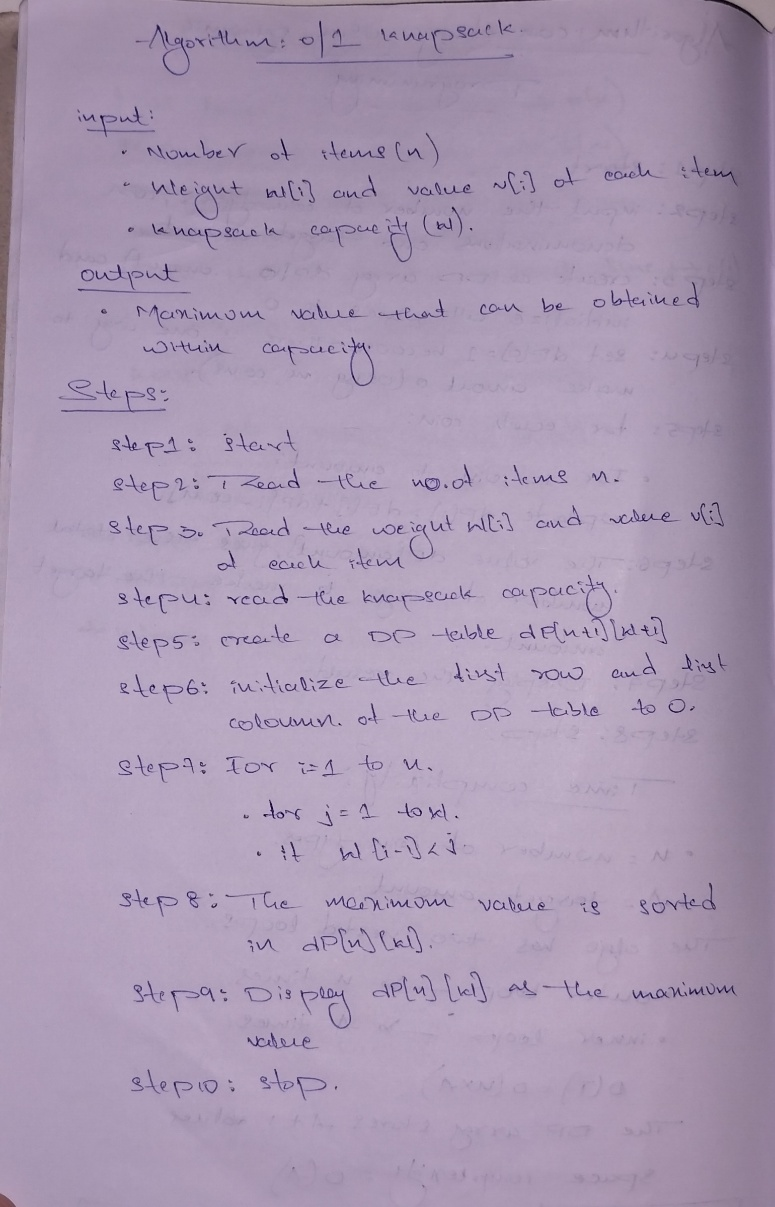 Algorithm: 0/1 knapsack.
input:
• Number of items (n)
• Weight w[i] and value v[i] of each item
• knapsack capacity (w).
output
• Maximum value that can be obtained
within capacity.
Steps:
step1: start
step2: Read the no.of items n.
step3. Read the weight w[i] and value v[i]
of each item
step4: read the knapsack capacity.
step5: create a DP table dP[n+1][w+1]
step6: initialize the first row and first
coloumn. of the DP table to 0.
step7: For i=1 to n.
• for j=1 to w.
• if w[i-1]<j.
step8: The maximum value is sorted
in dP[n][w].
step9: Display dP[n][w] as the maximum
value
step10: stop.